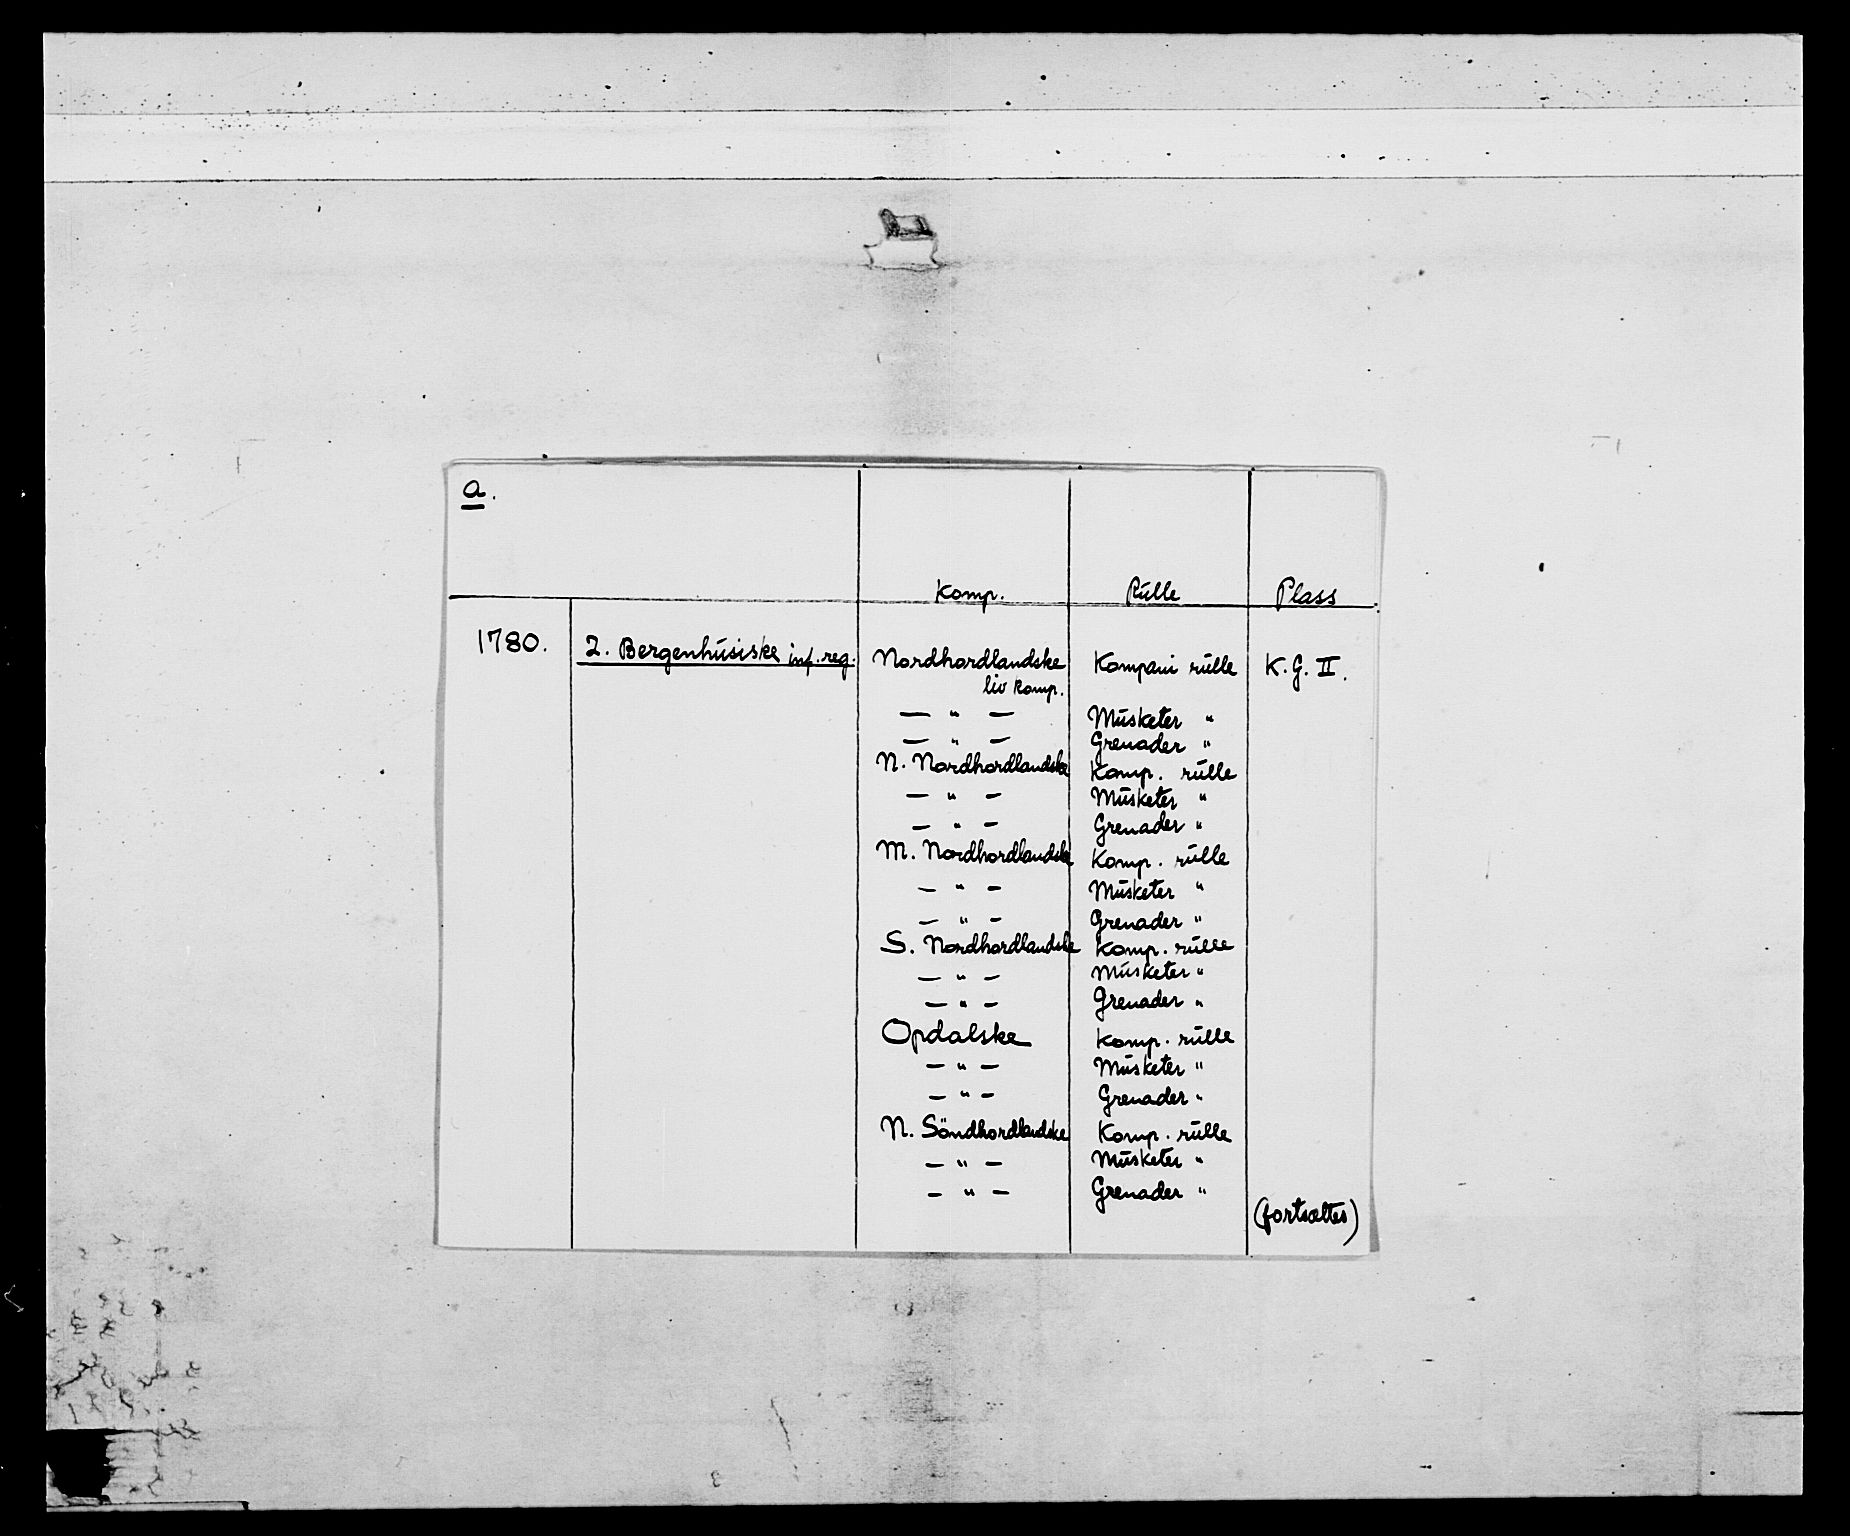 a.
Komp. Rúlle Plass
1780. 2. Bergenhúsiske inf. reg. Nordhordlandske Kompani rúlle K.G. II.
liv komp.
— " — Músketer "
— " — Grenader "
N. Nordhordlandske Komp. rúlle
— " — Músketer "
— " — Grenader "
M. Nordhordlandske Komp. rúlle
— " — Músketer "
— " — Grenader "
S. Nordhordlandske Komp. rúlle
— " — Músketer "
— " — Grenader "
Opdalske Komp. rúlle
— " — Músketer "
— " — Grenader "
N. Söndhordlandske Komp. rúlle
— " — Músketer "
— " — Grenader "
(fortsættes)